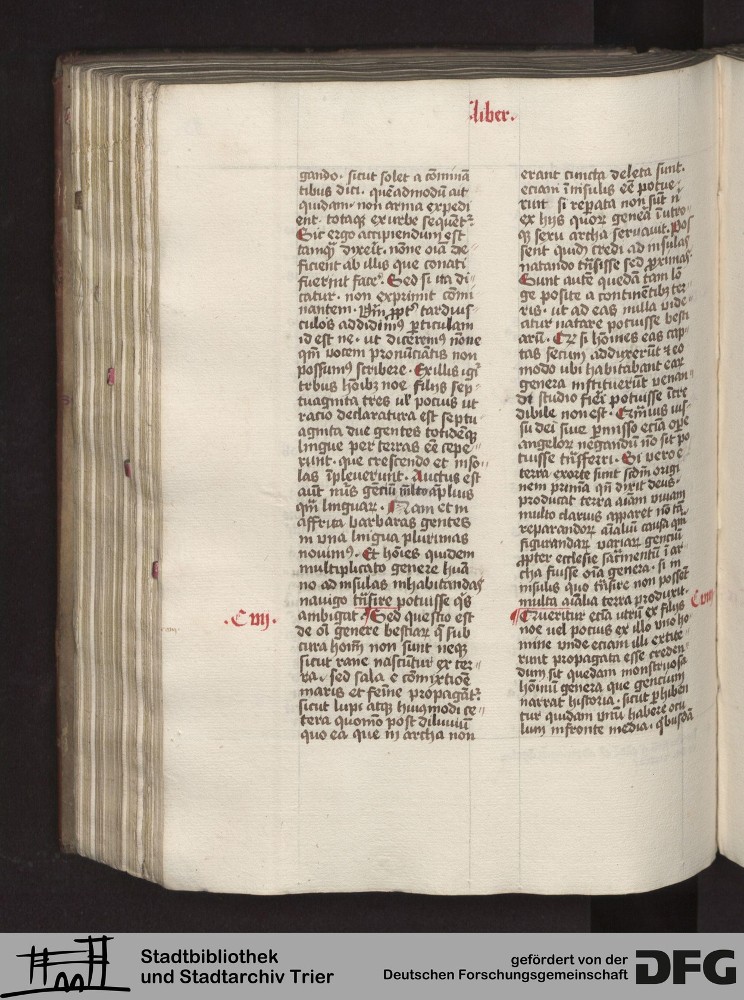 liber.
gando. sicut solet a cōminā
tibus dici. quēadmodū ait
quidam. non arma expedi
ent. totaq; ex urbe sequēt᷑.
Sic ergo accipiendum est
tamq̄ dixerit. nōne oīa de
ficient ab illis que conati
fuerint facē. Sed si ita di
catur. non exprimit cōmi
nantem. tardius
culos addidimꝰ particulam
id est ne. ut diceremꝰ nōne
qm̄ vocem pronūciātis non
possumꝰ scribere. Ex illis igr̄
tribus hoībꝫ noe filijs sep
tuaginta tres ul̓ pociꝰ ut
racio declaratura est septu
aginta due gentes totidēq̨
lingue per terras eē cepe
runt. que crescendo et inso
las īpleuerunt. Auctus est
aūt nūs genciū ml̓to ampliꝰ
qm̄ linguarꝝ. Nam et in
affrica barbaras gentes
in vna lingua plurimas
nouimꝰ. Et hoīes quidem
multiplicato genere huā
no ad insulas inhabitandas
nauigo trāsire potuisse q̓s
ambigat. Sed questio est
.C vij.
de oī genere bestiarꝝ q̄ sub
cura hoīm non sunt neqꝫ
sicut rane nascūtur ex ter
ra. sed sola ē cōmixtiōe
maris et femīe propagāt᷑.
sicut lupi atqꝫ huiꝰmodi ce
tera quomō post diluuiū
quo ea que in archa non
erant cuncta deleta sunt.
eciam ī insulis eē potue
rint si repata non sūt n̄
ex hijs quoꝝ genea ī utro
qꝫ sexu archa seruauit. Pos
sent quidē credi ad insulas
natando trāsisse sed proximas.
Sunt autē quedā tam lō
ge posite a continētibꝫ ter
ris. ut ad eas nulla vide
atur natare potuisse besti
arū. Qd̓ si hōines eas cap
tas secum adduxerūt et eo
modo ubi habitabant earꝝ
genera instituerūt venan
di studio fieri potuisse incre
dibile non est. Quīuis ius
su dei siue pmisso eciā opē
angelorꝝ negandū nō sit po
tuisse trāsferri. Si vero e
terra exorte sunt scd̓m origi
nem primā qn̄ dixit deus.
producat terra aīam viuam
multo clarius apparet nō tā
reparandorꝝ aīaliū causa qm̄
figurandarꝝ variarꝝ genciū
ꝓpter ecclesie sacr̄mentū ī ar
cha fuisse oīa genera. si in
insulis quo trāsire non possēt
multa aīalia terra produxit.
C viij
Queritur eciā utrū ex filijs
noe uel pocius ex illo vno ho
mine vnde eciam illi extite
runt propagata esse creden
dum sit quedam monstruosa
hōinū genera que gencium
narrat historia. sicut phiben
tur quidam vnū habere ocu
lum in fronte media. q̓busdā
Stadtbibliothek
und Stadtarchiv Trier
gefördert von der
Deutschen Forschungsgemeinschaft
DFG